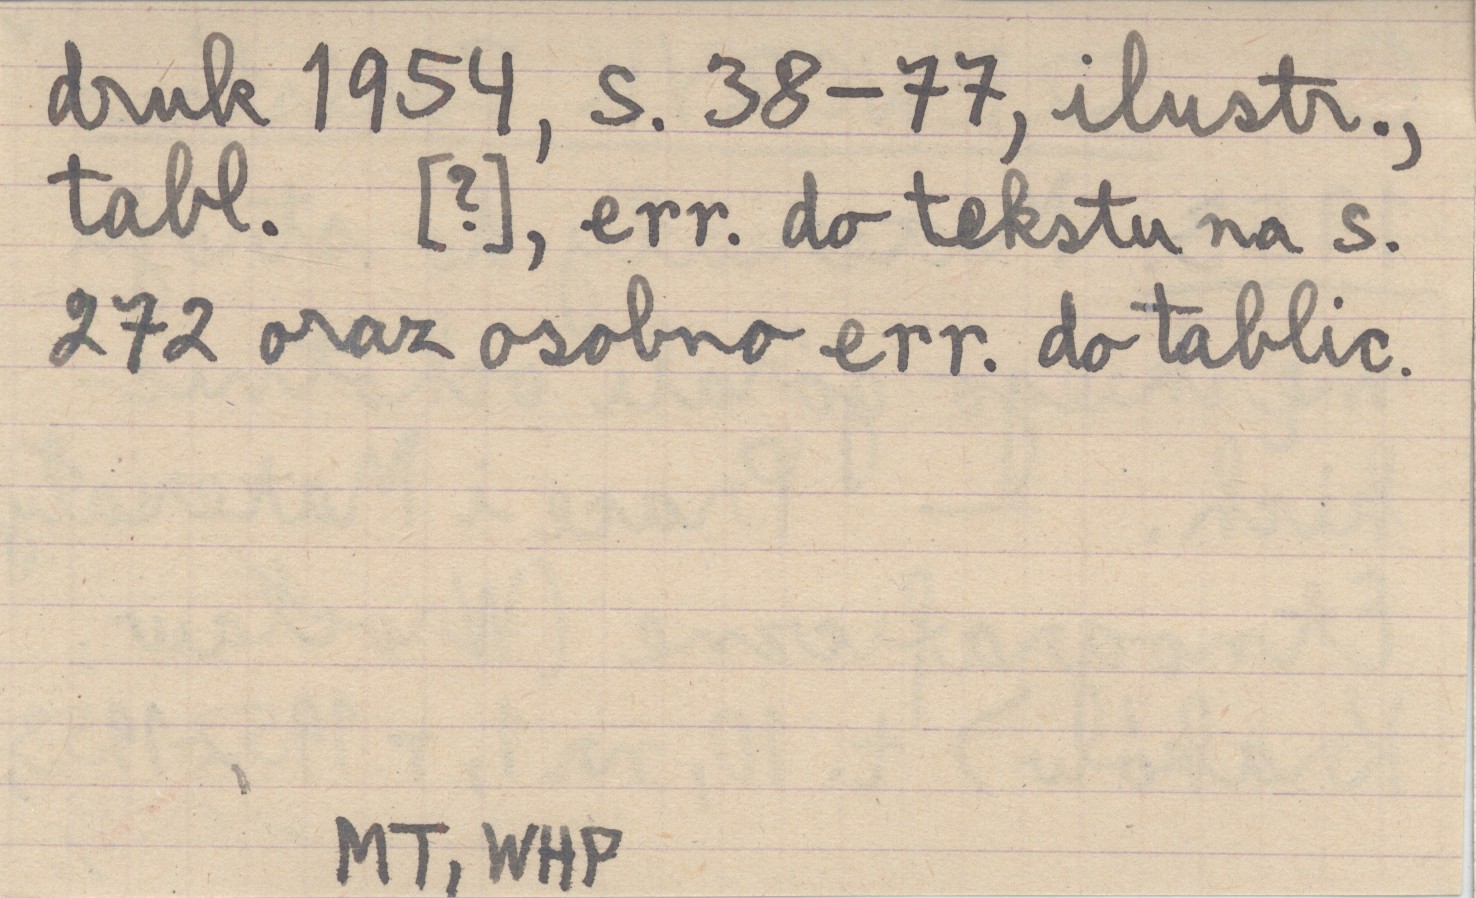 druk 1954, s. 38-77, ilustr.,
tabl. [?], err. do tekstu na s.
272 oraz osobno err. do tablic.
MT, WHP